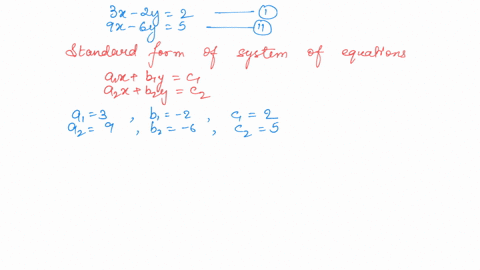 3x-2y = 2 —— (i)
9x-6y = 5 —— (ii)
Standard form of system of equations
a₁x + b₁y = c₁
a₂x + b₂y = c₂
a₁ = 3 , b₁ = -2 , c₁ = 2
a₂ = 9 , b₂ = -6 , c₂ = 5